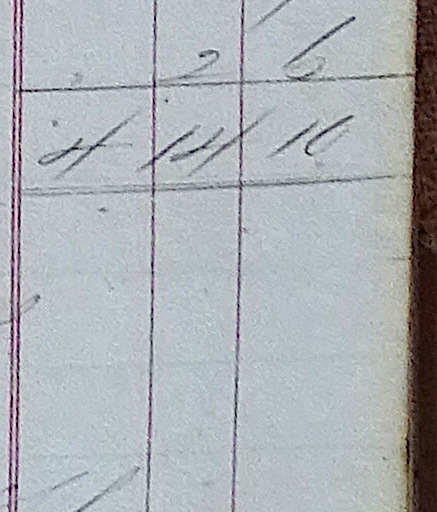 2 6
4 14 10